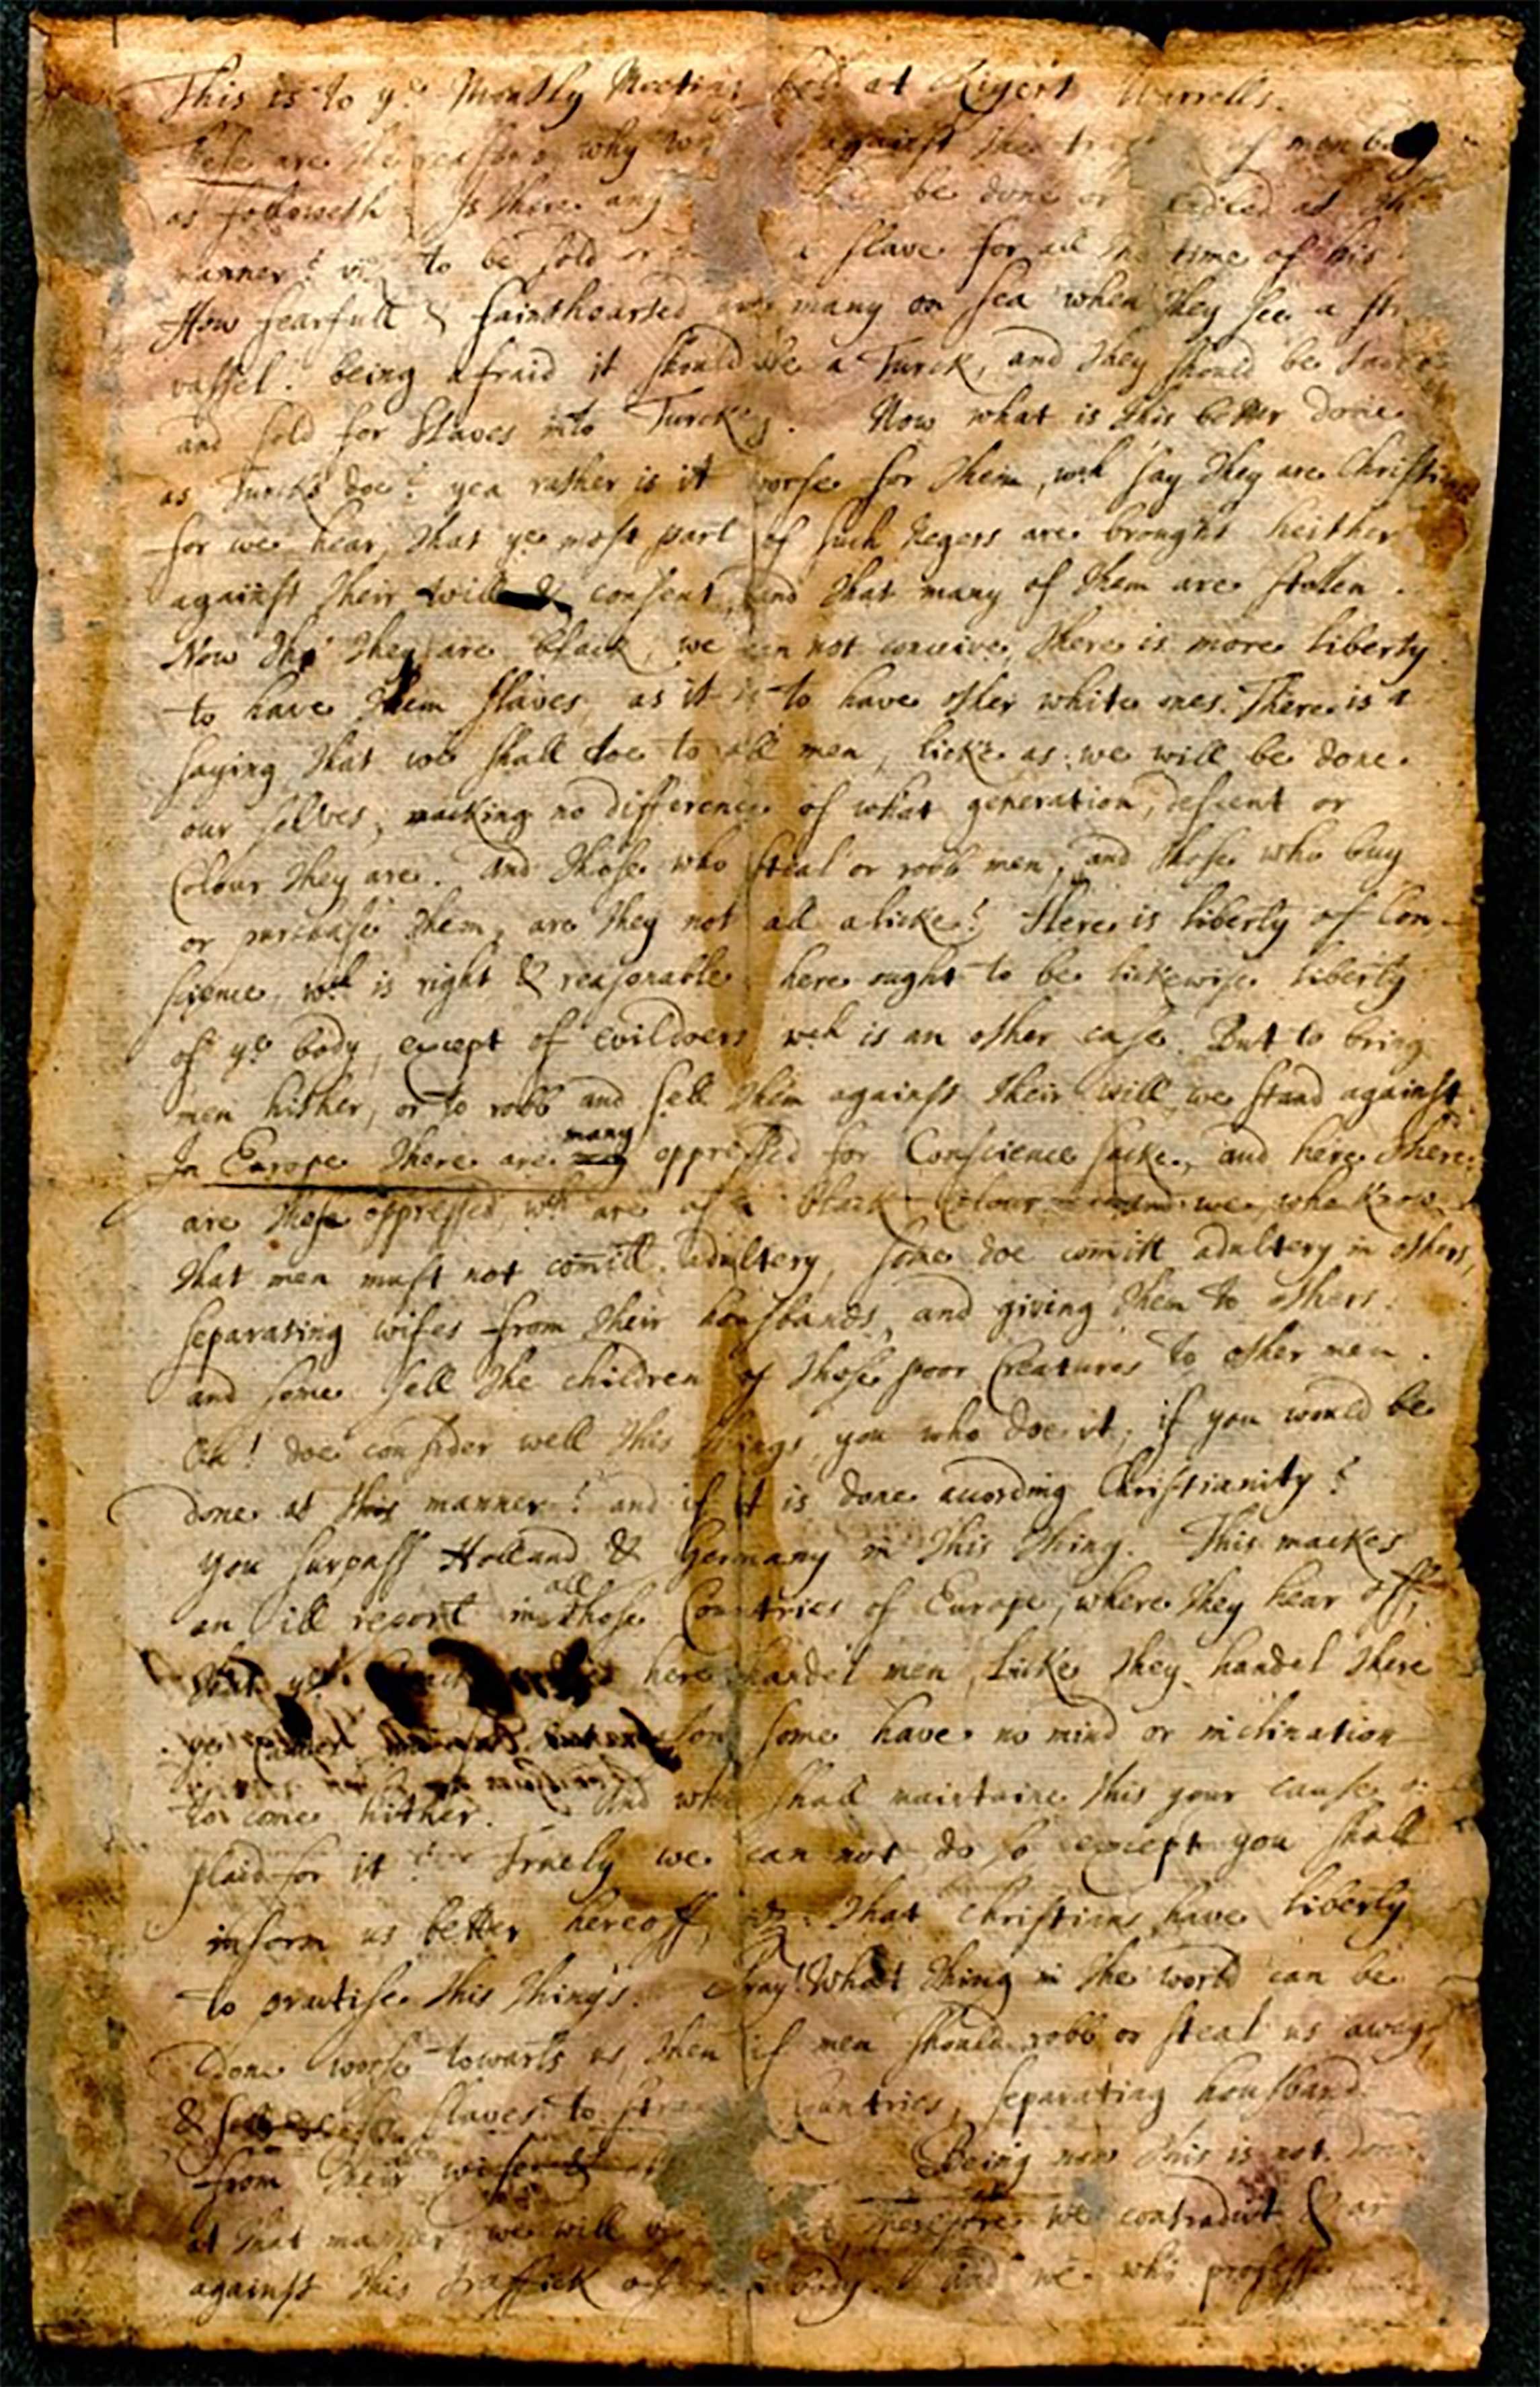 This is to ye Monthly Meeting held at Rigert Worrells.
These are the reasons why we against the of men body
as followeth: Is there any be done or handled at this
manner? viz to be sold or a slave for all the time of his
How fearfull & fainthearted are many on sea when they see a
vassel. being afraid it should be a Turck, and they should be
and sold for Slaves into Turckey. Now what is this better done
as Turcks doe? yea rather is it worse for them, wch say they are Christians
for we hear, that ye most part of such Negers are brought heither
against their will & consent, and that many of them are stollen.
Now tho' they are black, we can not conceive there is more liberty
to have them slaves, as it is to have other white ones. There is a
saying, that we shall doe to all men, licke as we will be done
our selves, macking no difference of what generation, descent or
Colour they are. and those who steal or robb men, and those who buy
or purchase them, are they not all alicke? Here is liberty of Con-
science, wch is right & reasonable here ought to be lickewise liberty
of ye body, except of evildoers wch is an other case. But to bring
men hither, or to robb and sell them against their will, we stand against.
In Europe there are many oppressed for Conscience sacke, and here there
are those oppressed, wch are of a black Colour and we, who know
that men must not comitt adultery, some doe comitt adultery in others,
separating wifes from their housbands, and giving them to others.
and some sell the children of those poor Creatures to other men.
Oh! doe consider well this things, you who doe it, if you would be
done at this manner? and if it is done according Christianity?
you surpass Holland & Germany in this thing. This mackes
an ill report in all those Countries of Europe, where they hear off,
that ye here handel men, licke they handel there
ye for some have no mind or inclination
to come hither. And who shall maintaine this your cause or
plaid for it? Truely we can not do so except you shall
inform us better hereoff, viz. that christians have liberty
to practise this things. Pray! What thing in the world can be
done worse towarts us then if men should robb or steal us away,
& sell slaves to Countries, separating housband
from their wife & Being now this is not done
at that manner, we will therefore we contradict &
against this traffick of body. And we who profess